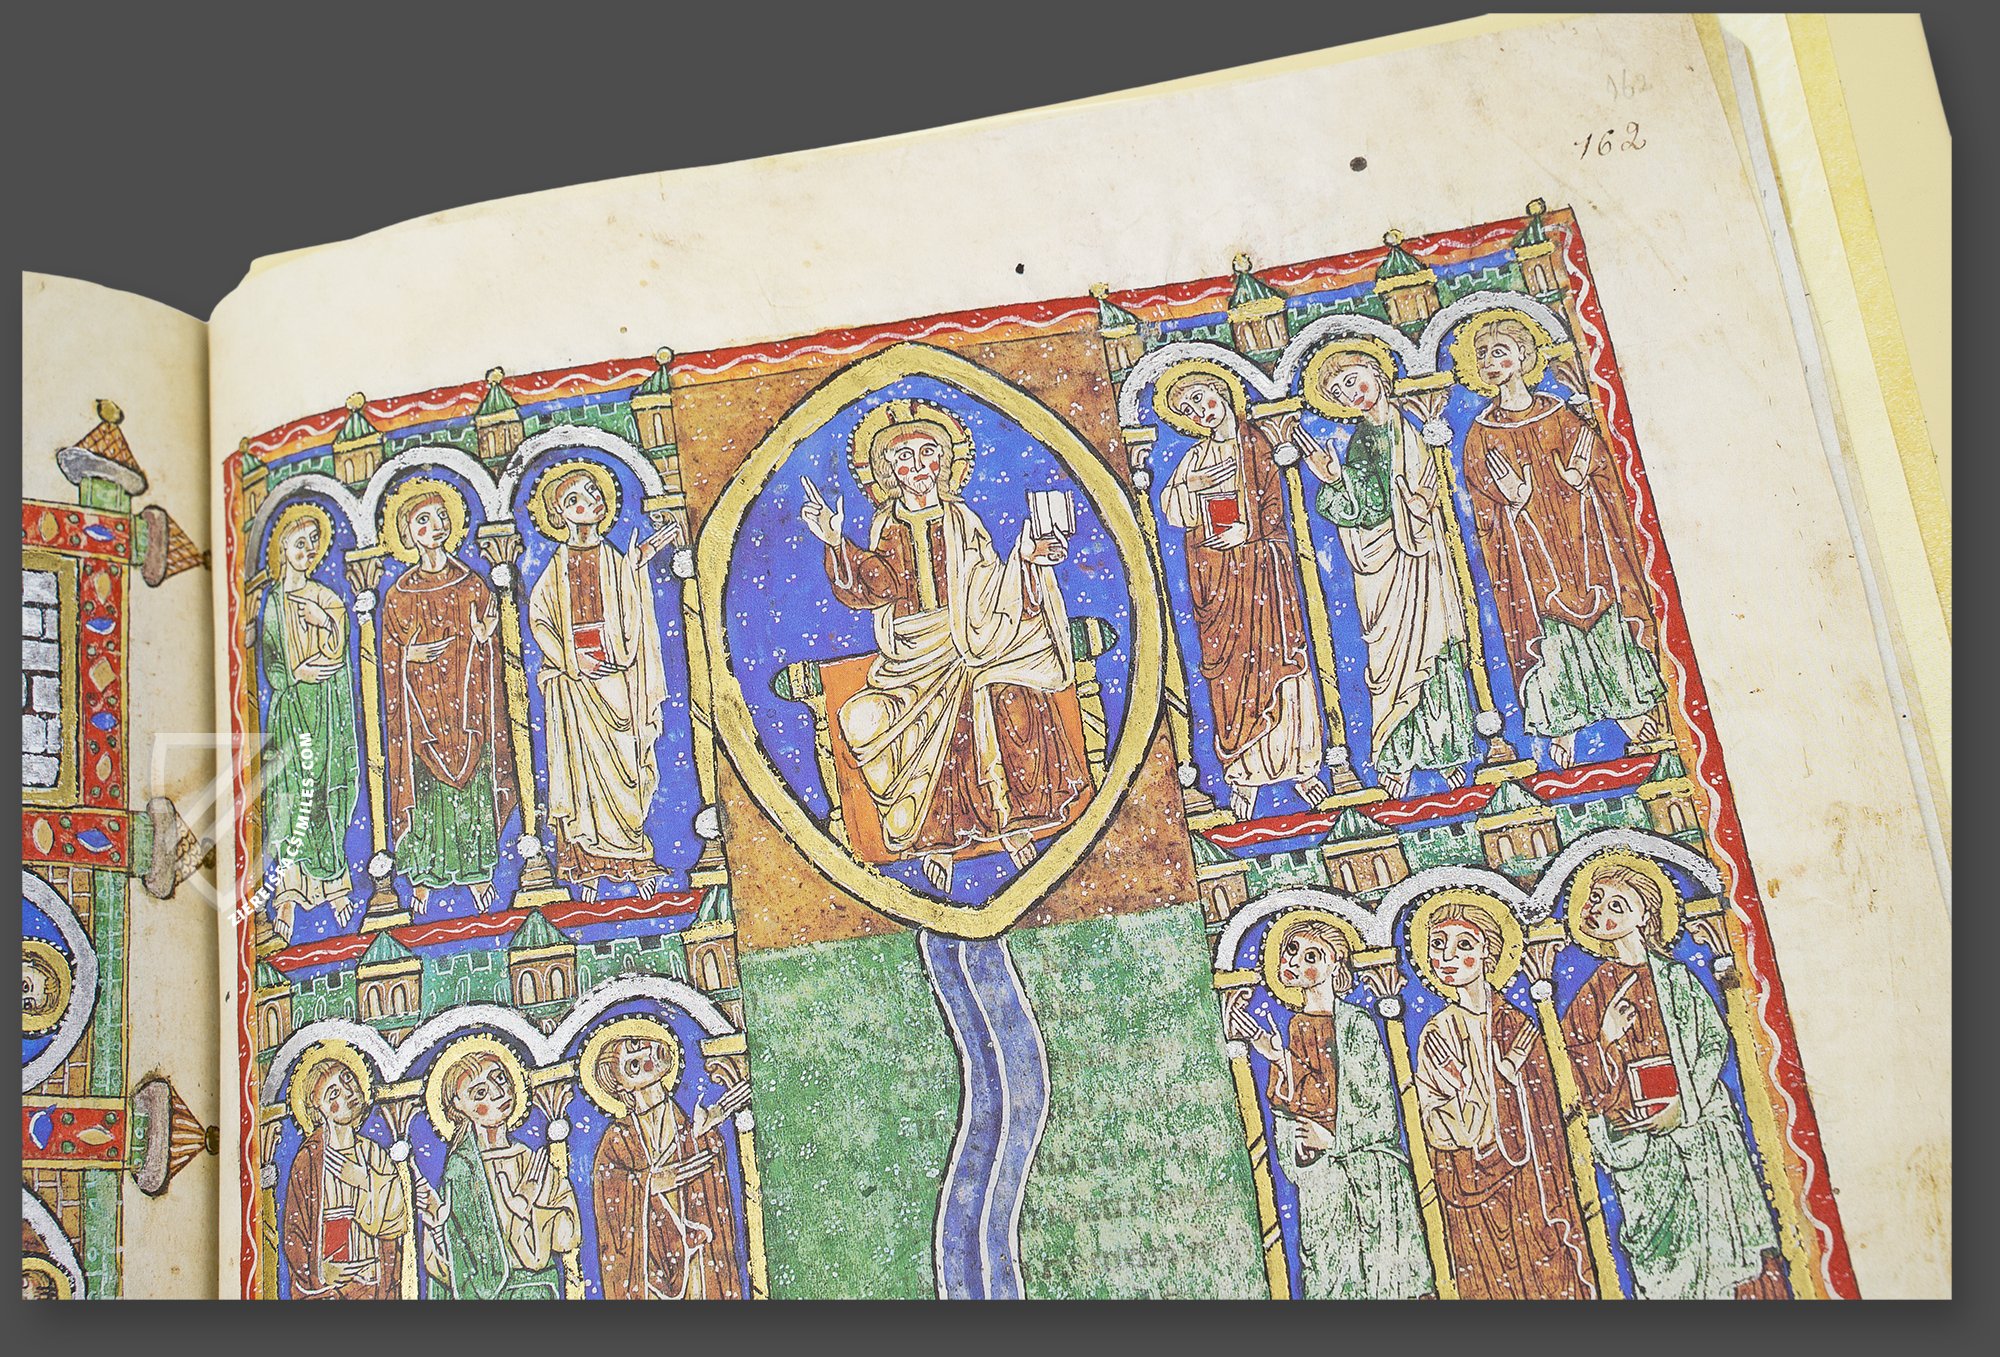 162
162
ZIEREIS FACSIMILES.COM